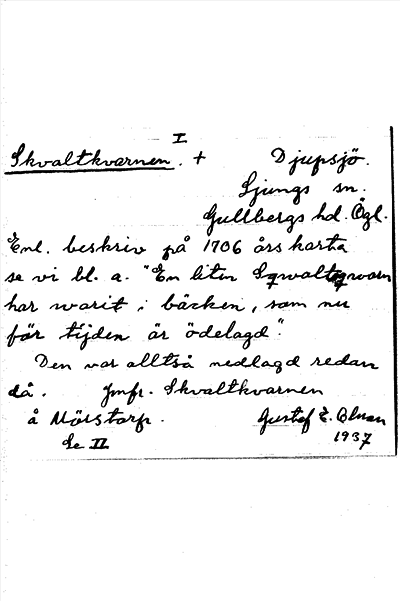 I
Skvaltkvarnen. + Djupsjö.
Ljungs sn.
Gullbergs hd. Ögl.
Enl. beskriv på 1706 års karta
se vi bl. a. "En liten Sqwaltqwarn
har warit i bäcken, som nu
för tijden är ödelagd".
Den var alltså nedlagd redan
då. Jmfr. Skvaltkvarnen
å Mörstorp. Gustaf E.
Se II 1937